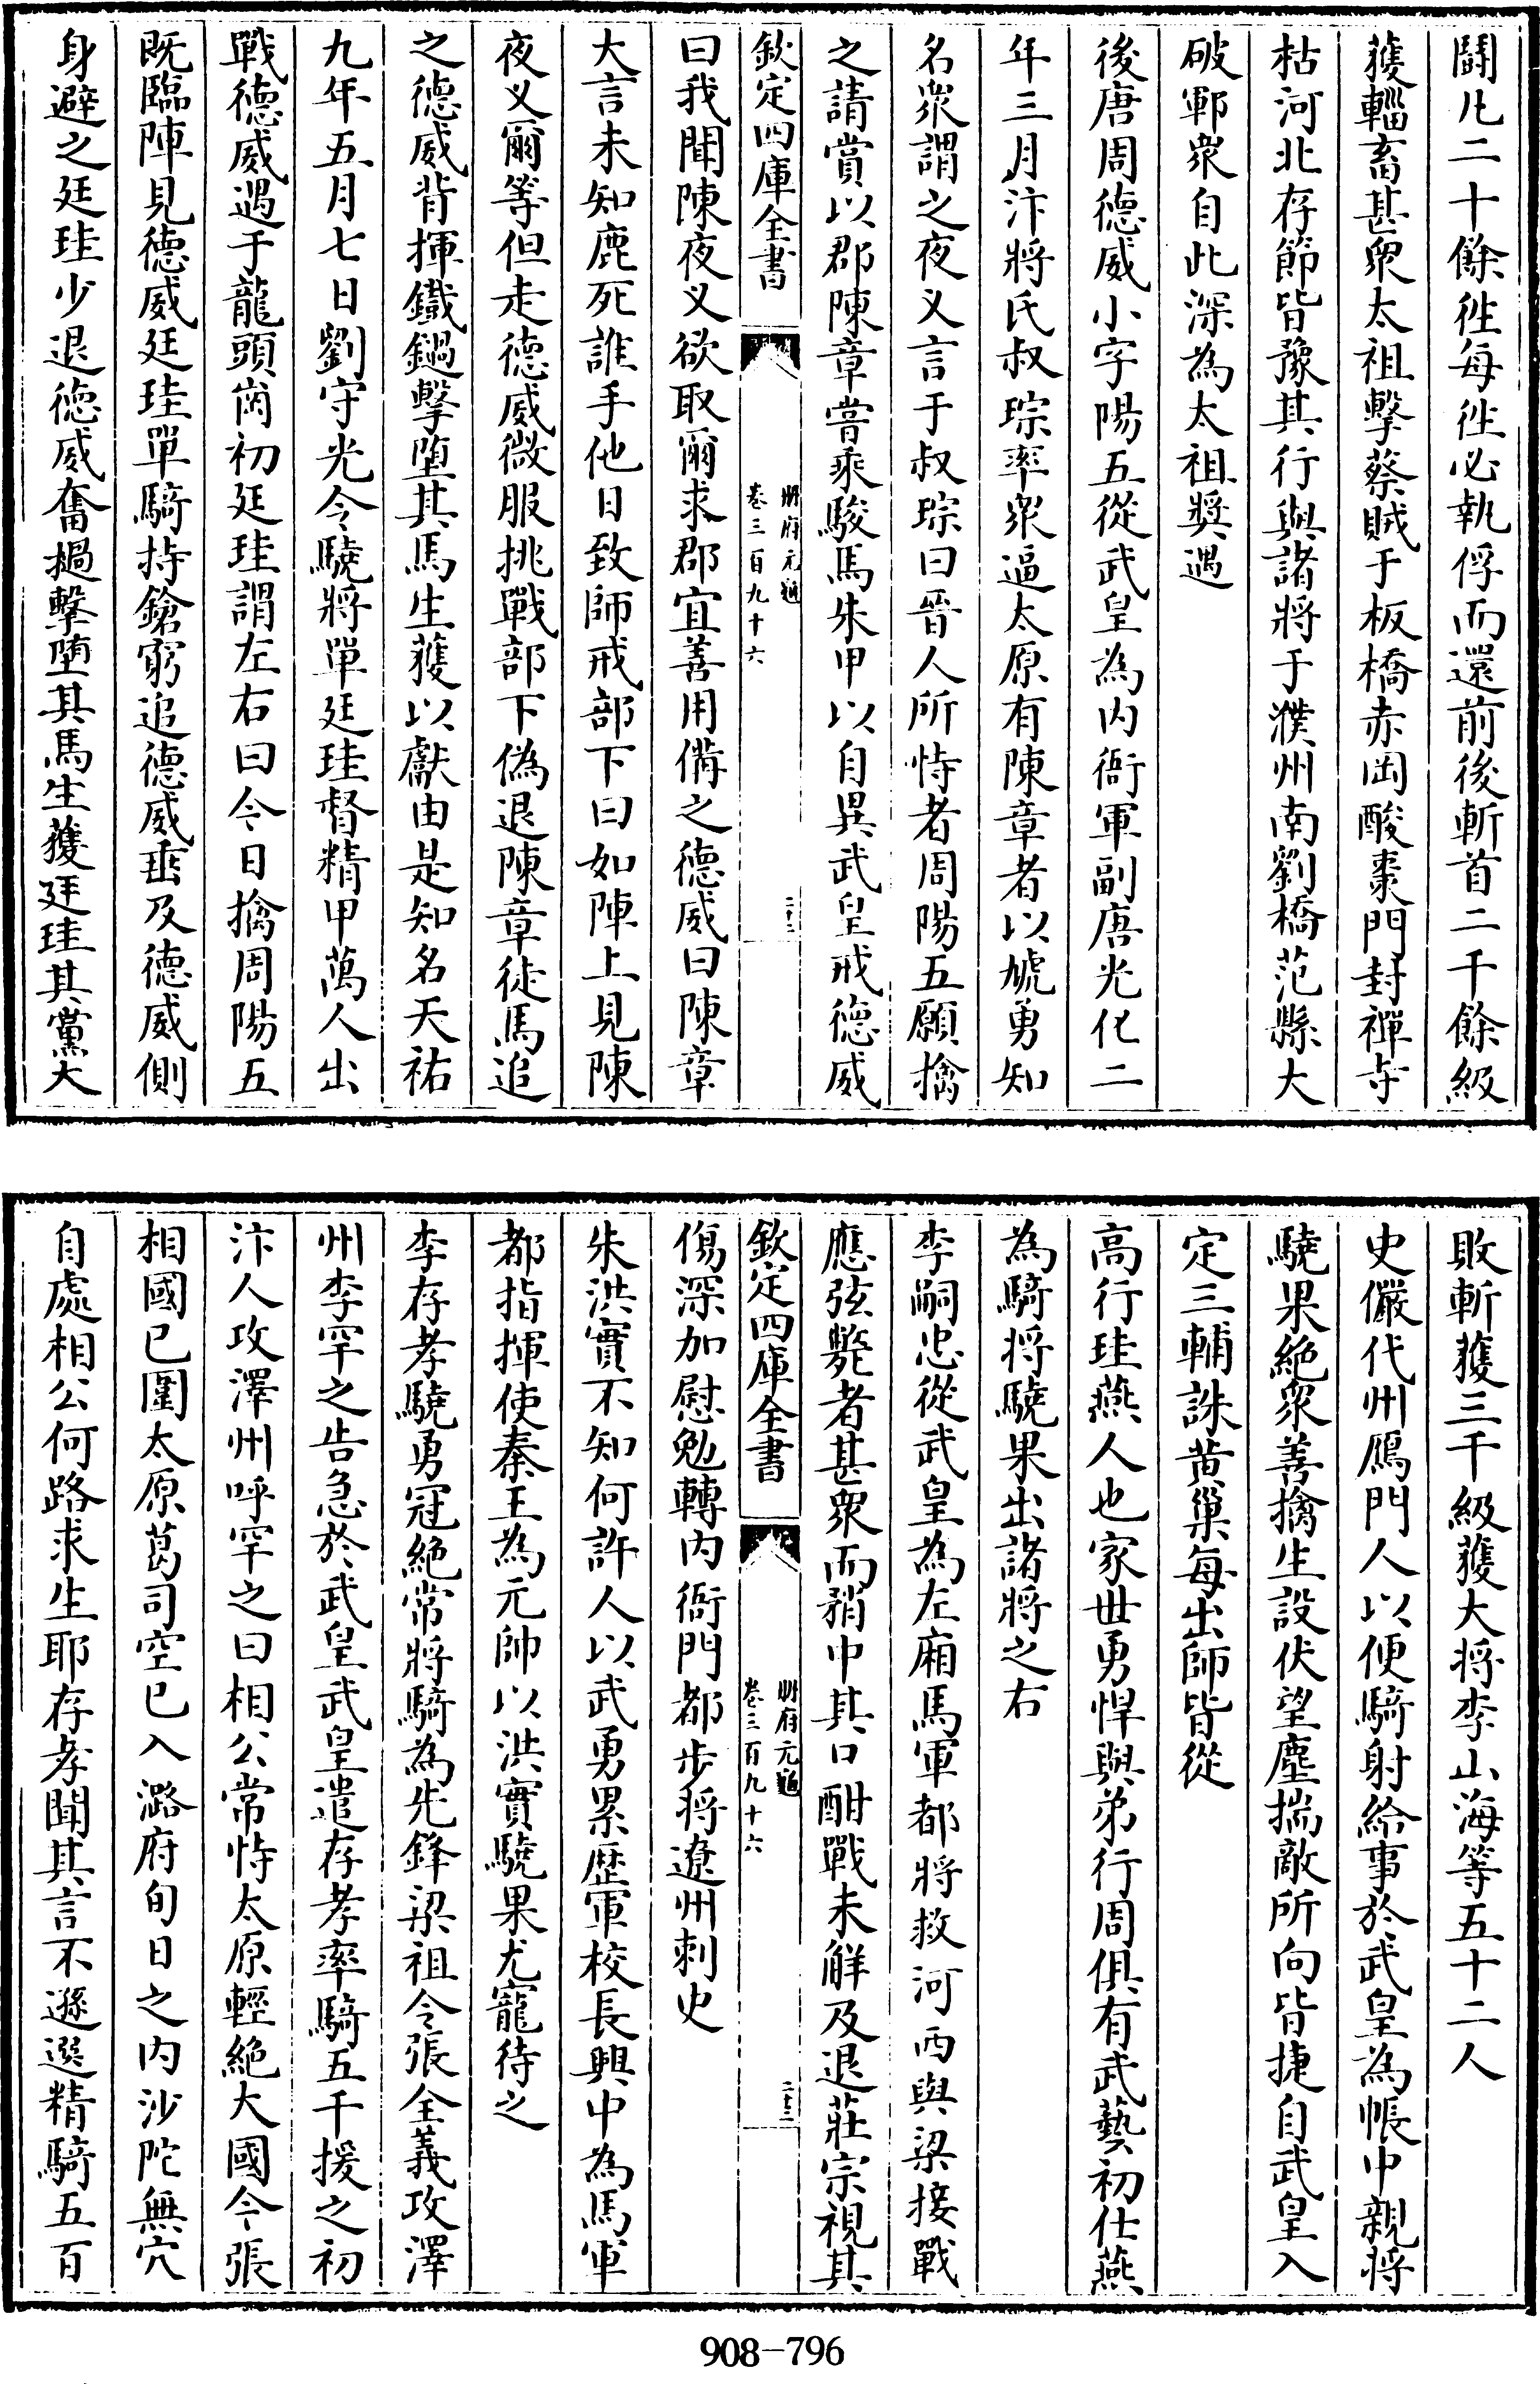 鬬凡二十餘徃每徃必執俘而還前後斬首二千餘級
獲輜畜甚衆太祖擊蔡賊于板橋赤岡酸棗門封禪寺
枯河北存節皆豫其行與諸將于濮州南劉橋范縣大
破鄆衆自此深為太祖奬遇
後唐周德威小字陽五從武皇為内衙軍副唐光化二
年三月汴將氏叔琮率衆逼太原有陳章者以虓勇知
名衆謂之夜义言于叔琮曰晉人所恃者周陽五願擒
之請賞以郡陳章嘗乘駿馬朱甲以自異武皇戒德威
欽定四庫全書
册府元龜
卷三百九十六
二十三
曰我聞陳夜义欲取爾求郡宜善用備之德威曰陳章
大言未知鹿死誰手他日致師戒部下曰如陣上見陳
夜义爾等但走德威微服挑戰部下偽退陳章徒馬追
之德威背揮鐵鎚擊墮其馬生獲以獻由是知名天祐
九年五月七日劉守光令驍將單廷珪督精甲萬人出
戰德威遇于龍頭崗初廷珪謂左右曰今日擒周陽五
既臨陣見德威廷珪單騎持鎗窮追德威垂及德威側
身避之廷珪少退德威奮檛擊墮其馬生獲廷珪其黨大
敗斬獲三千級獲大將李山海等五十二人
史儼代州鴈門人以便騎射給事於武皇為帳中親將
驍果絶衆善擒生設伏望塵揣敵所向皆捷自武皇入
定三輔誅黄巢每出師皆從
高行珪燕人也家世勇悍與弟行周俱有武藝初仕燕
為騎將驍果出諸將之右
李嗣忠從武皇為左廂馬軍都將救河西與梁接戰
應弦斃者甚衆而矟中其口酣戰未解及退莊宗視其
欽定四庫全書
册府元龜
卷三百九十六
二十三
傷深加慰勉轉内衙門都步將遼州刺史
朱洪實不知何許人以武勇累歴軍校長興中為馬軍
都指揮使秦王為元帥以洪實驍果尤寵待之
李存孝驍勇冠絶常將騎為先鋒梁祖令張全義攻澤
州李罕之告急於武皇武皇遣存孝率騎五千援之初
汴人攻澤州呼罕之曰相公常恃太原輕絶大國今張
相國已圍太原葛司空已入潞府旬日之内沙陀無穴
自處相公何路求生耶存孝聞其言不遜選精騎五百
908-796